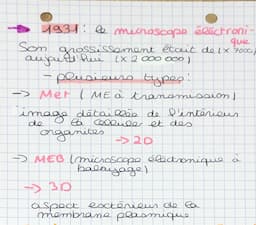 → 1931 : le microscope électroni-
que
Son grossissement était de (x 7000,
aujourd'hui (x 2 000 000)
- plusieurs types :
→ Met (ME à transmission)
image détaillée de l'intérieur
de la cellule et des
organites
→ 2D
→ MEB (microscope électronique à
balayage)
→ 3D
aspect extérieur de la
membrane plasmique